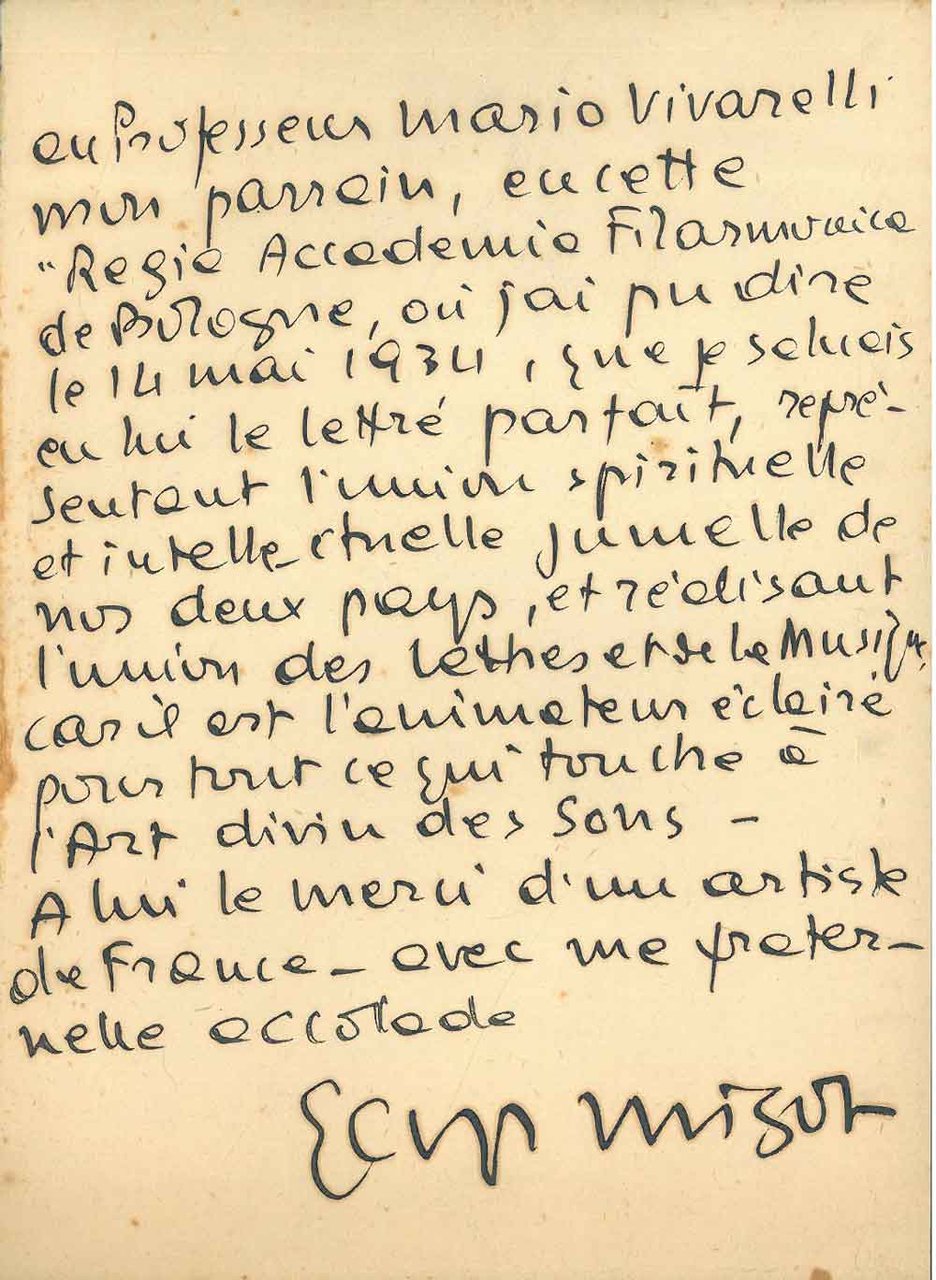 au Professeur Mario Vivarelli
mon parrain, en cette
"Regia Accademia Filarmonica
de Bologne, où j'ai pu dire
le 14 mai 1934, que je saluais
en lui le lettré parfait, repré-
sentant l'union spirituelle
et intelle-ctuelle jumelle de
nos deux pays, et réalisant
l'union des lettres et de la Musique,
car il est l'animateur éclairé
pour tout ce qui touche à
l'Art divin des Sons -
A lui le merci d'un artiste
de France - avec ma frater-
nelle accolade
Migot